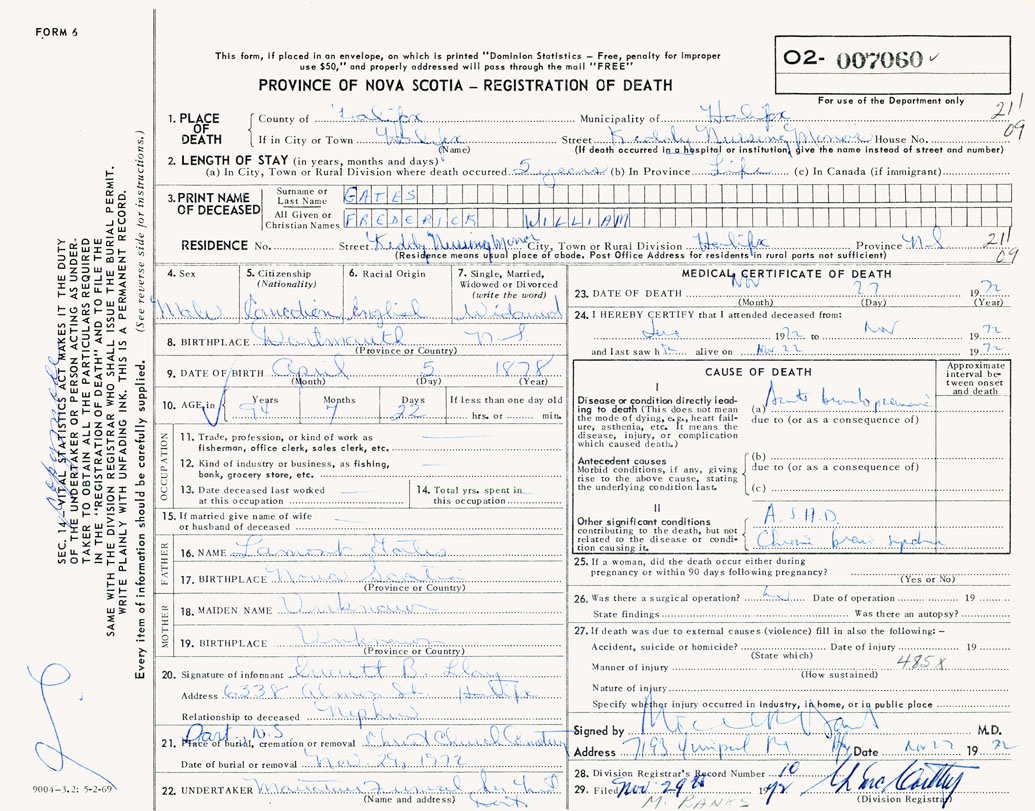 FORM 6
This form, if placed in an envelope, on which is printed "Dominion Statistics - Free, penalty for improper
use $50," and properly addressed will pass through the mail "FREE"
O2- 007060
PROVINCE OF NOVA SCOTIA - REGISTRATION OF DEATH
For use of the Department only
211
09
1. PLACE OF DEATH
County of Halifax Municipality of Halifax
If in City or Town Halifax Street Keddy Nursing Manor House No.
(Name) (If death occurred in a hospital or institution, give the name instead of street and number)
2. LENGTH OF STAY (in years, months and days)
(a) In City, Town or Rural Division where death occurred 5 years (b) In Province Life (c) In Canada (if immigrant)
3. PRINT NAME OF DECEASED
Surname or Last Name GATES
All Given or Christian Names FREDERICK WILLIAM
RESIDENCE No. Street Keddy Nursing Manor City, Town or Rural Division Halifax Province N.S
211
09
(Residence means usual place of abode. Post Office Address for residents in rural parts not sufficient)
4. Sex 5. Citizenship (Nationality) 6. Racial Origin 7. Single, Married, Widowed or Divorced (write the word)
Male Canadian English Widowed
8. BIRTHPLACE Dartmouth N-S
(Province or Country)
9. DATE OF BIRTH April 5 1878
(Month) (Day) (Year)
10. AGE in Years Months Days If less than one day old
94 7 22 hrs. or min.
OCCUPATION
11. Trade, profession, or kind of work as
fisherman, office clerk, sales clerk, etc.
12. Kind of industry or business, as fishing,
bank, grocery store, etc.
13. Date deceased last worked
at this occupation
14. Total yrs. spent in
this occupation
15. If married give name of wife
or husband of deceased
FATHER
16. NAME Lamont Gates
17. BIRTHPLACE Nova Scotia
(Province or Country)
MOTHER
18. MAIDEN NAME Unknown
19. BIRTHPLACE Unknown
(Province or Country)
20. Signature of informant B.
Address 6338 St. Halifax
Relationship to deceased Nephew
Dart. N.S.
21. Place of burial, cremation or removal Christ Church Cemetery
Date of burial or removal Nov. 29, 1972
22. UNDERTAKER
(Name and address)
MEDICAL CERTIFICATE OF DEATH
23. DATE OF DEATH NOV 27 1972
(Month) (Day) (Year)
24. I HEREBY CERTIFY that I attended deceased from:
1972 to Nov 1972
and last saw him alive on Nov 22 1972
CAUSE OF DEATH
Approximate interval between onset and death
I
Disease or condition directly leading to death (This does not mean the mode of dying, e.g., heart failure, asthenia, etc. It means the disease, injury, or complication which caused death.)
(a) Acute bronchopneumonia
due to (or as a consequence of)
Antecedent causes
Morbid conditions, if any, giving rise to the above cause, stating the underlying condition last.
(b)
due to (or as a consequence of)
(c)
II
Other significant conditions
contributing to the death, but not related to the disease or condition causing it.
A.S.H.D.
Chronic brain syndrome
25. If a woman, did the death occur either during
pregnancy or within 90 days following pregnancy?
(Yes or No)
26. Was there a surgical operation? Date of operation 19
State findings Was there an autopsy?
27. If death was due to external causes (violence) fill in also the following: -
Accident, suicide or homicide? Date of injury 19
(State which)
485X
Manner of injury
(How sustained)
Nature of injury
Specify whether injury occurred in industry, in home, or in public place
Signed by M.D.
Address 7193 Hfx Date Nov 27 1972
28. Division Registrar's Record Number 10
29. Filed Nov. 29th 1972
(Division Registrar)
M. BANKS
SEC. 14 - VITAL STATISTICS ACT MAKES IT THE DUTY
OF THE UNDERTAKER OR PERSON ACTING AS UNDERTAKER TO OBTAIN ALL THE PARTICULARS REQUIRED
IN THE "REGISTRATION OF DEATH" AND TO FILE THE
SAME WITH THE DIVISION REGISTRAR WHO SHALL ISSUE THE BURIAL PERMIT.
WRITE PLAINLY WITH UNFADING INK. THIS IS A PERMANENT RECORD.
Every item of information should be carefully supplied. (See reverse side for instructions.)
9004-3.2: 5-2-69